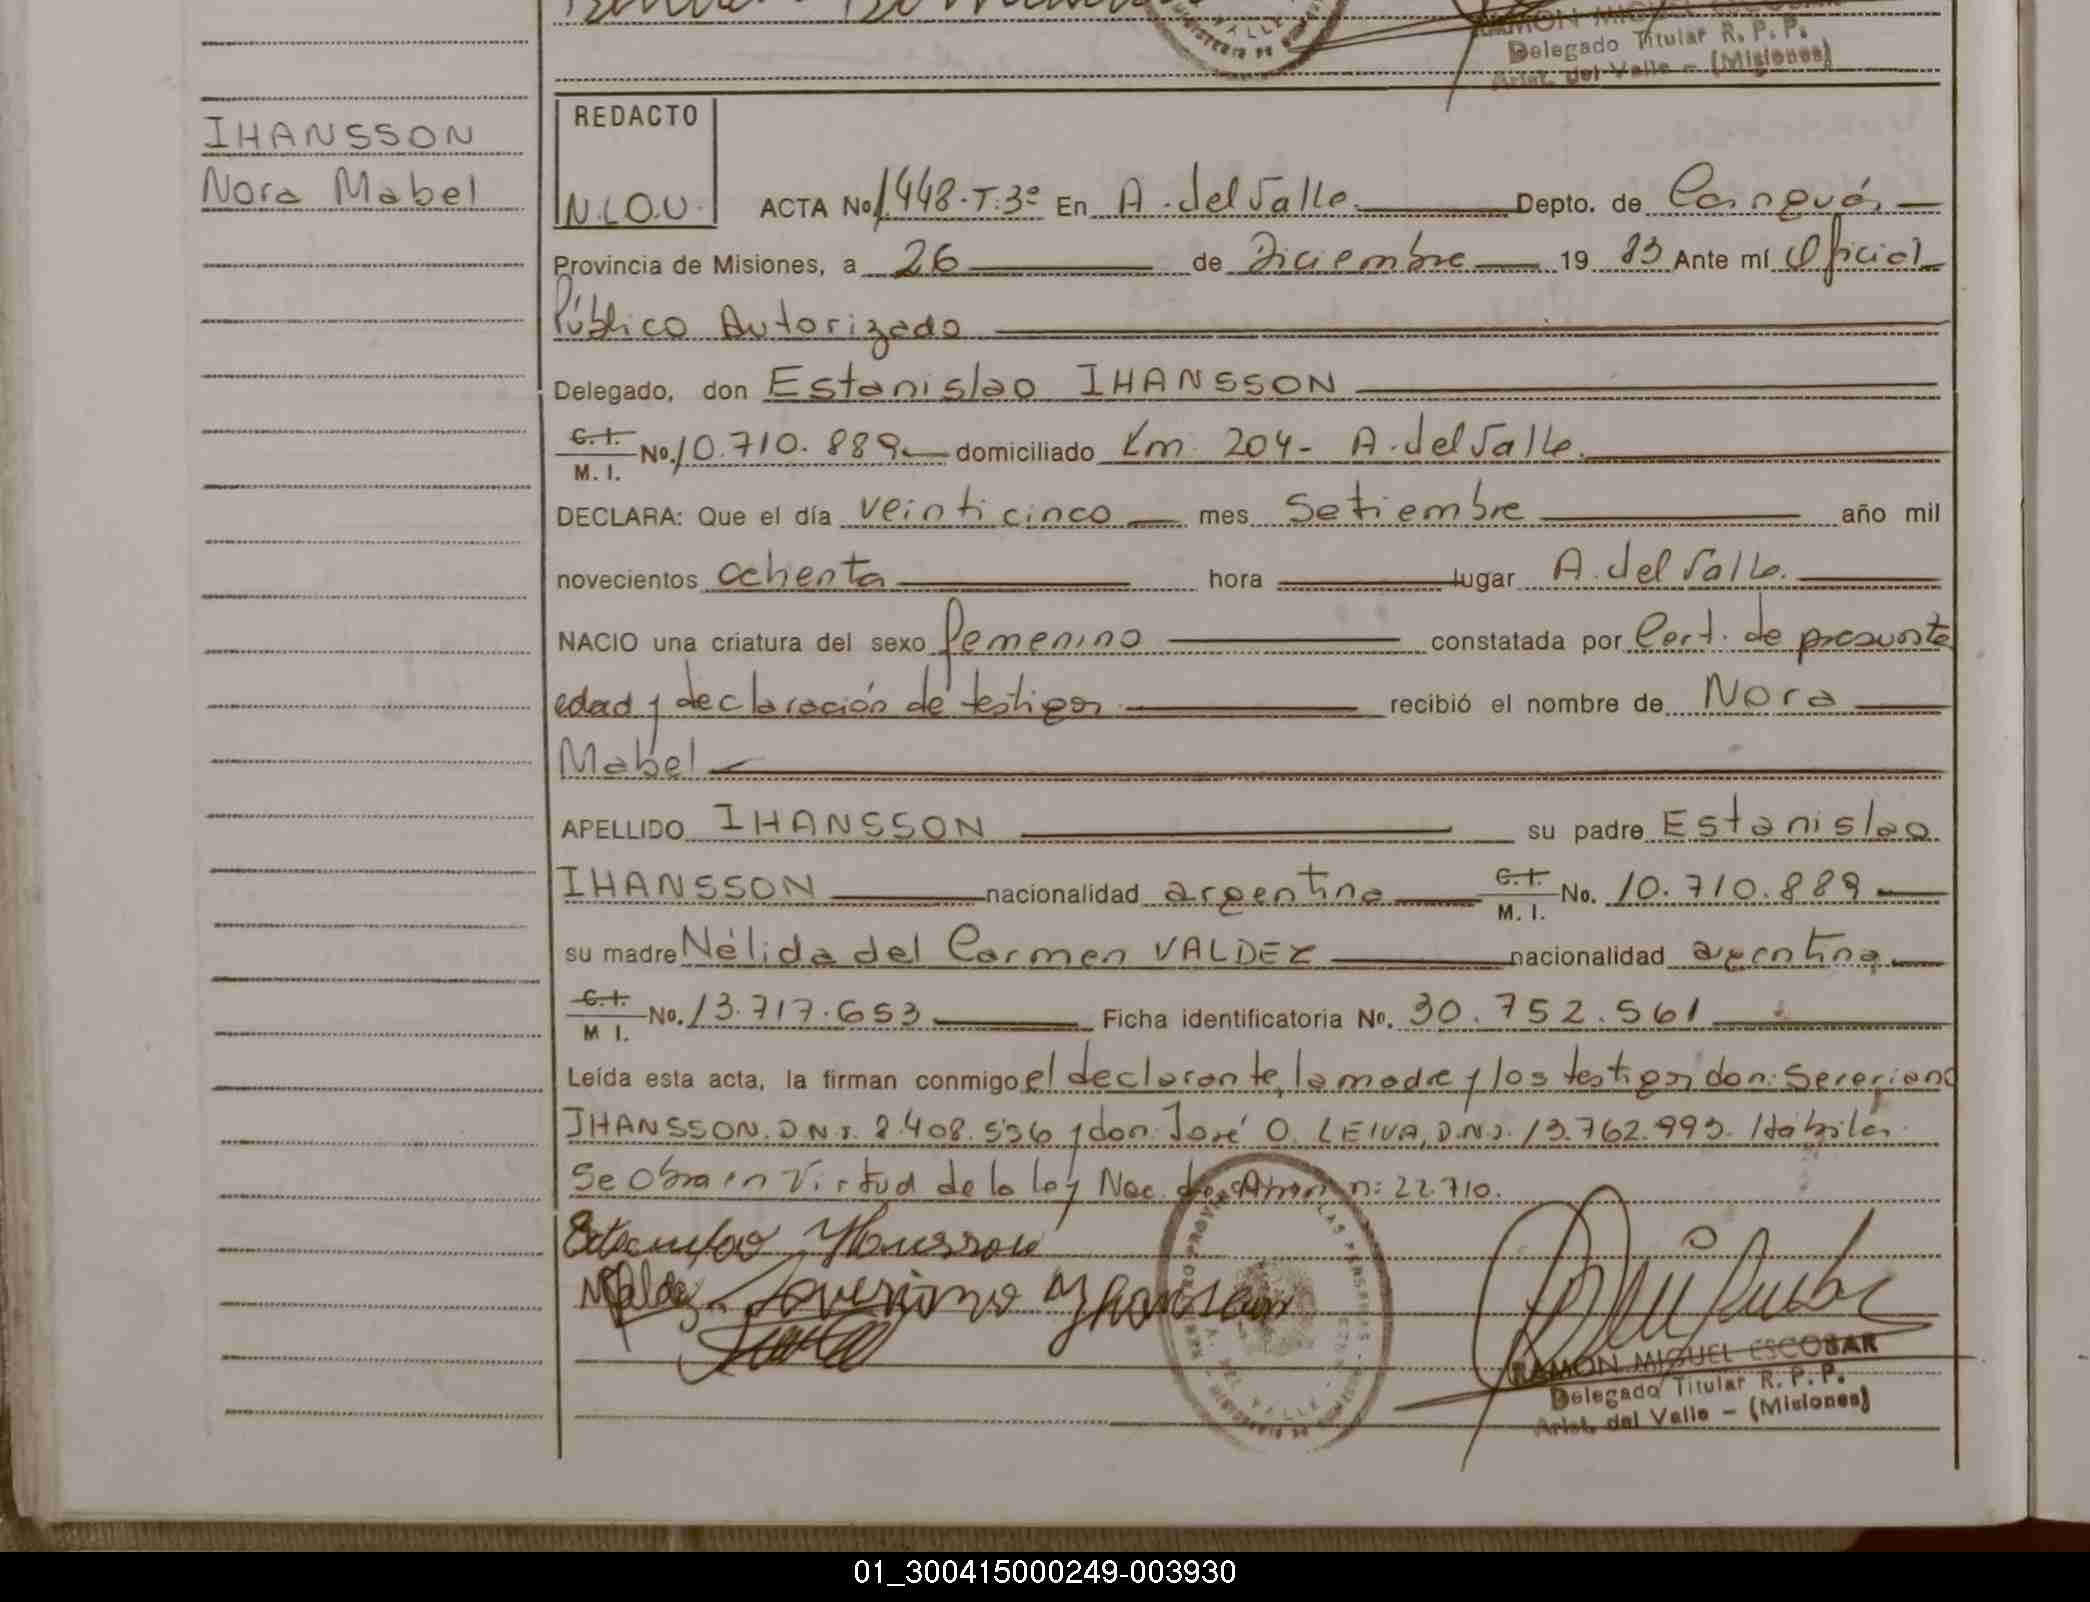 RAMON MIGUEL ESCOBAR
Delegado Titular R. P. P.
Arist. del Valle - (Misiones)
IHANSSON
Nora Mabel
REDACTO
N.L.O.U.
ACTA No 1448-T:3º En A. del Valle. Depto. de Cainguás
Provincia de Misiones, a 26 de Diciembre 19 83 Ante mí Oficial
Público Autorizado
Delegado, don Estanislao IHANSSON
C.I. M. I. No. 10.710.889 domiciliado Km. 204- A. del Valle.
DECLARA: Que el día veinticinco mes Setiembre año mil
novecientos ochenta hora lugar A. del Valle.
NACIO una criatura del sexo femenino constatada por Cert. de presunta
edad y declaración de testigos recibió el nombre de Nora
Mabel
APELLIDO IHANSSON su padre Estanislao
IHANSSON nacionalidad argentina C.I. M. I. No. 10.710.889
su madre Nélida del Carmen VALDEZ nacionalidad argentina
C.I. M I. No. 13.717.653 Ficha identificatoria No. 30.752.561
Leída esta acta, la firman conmigo el declarante, la madre y los testigos don: Severiano
IHANSSON. D.N.I. 8.408.536 y don: José O. LEIVA, D.N.I. 13.762.993. Hábiles.
Se Obra en Virtud de la ley Nac. de n: 22.710.
Estanislao Ihansson
NValdez Severiano Ihansson
RAMON MIGUEL ESCOBAR
Delegado Titular R. P. P.
Arist. del Valle - (Misiones)
01_300415000249-003930